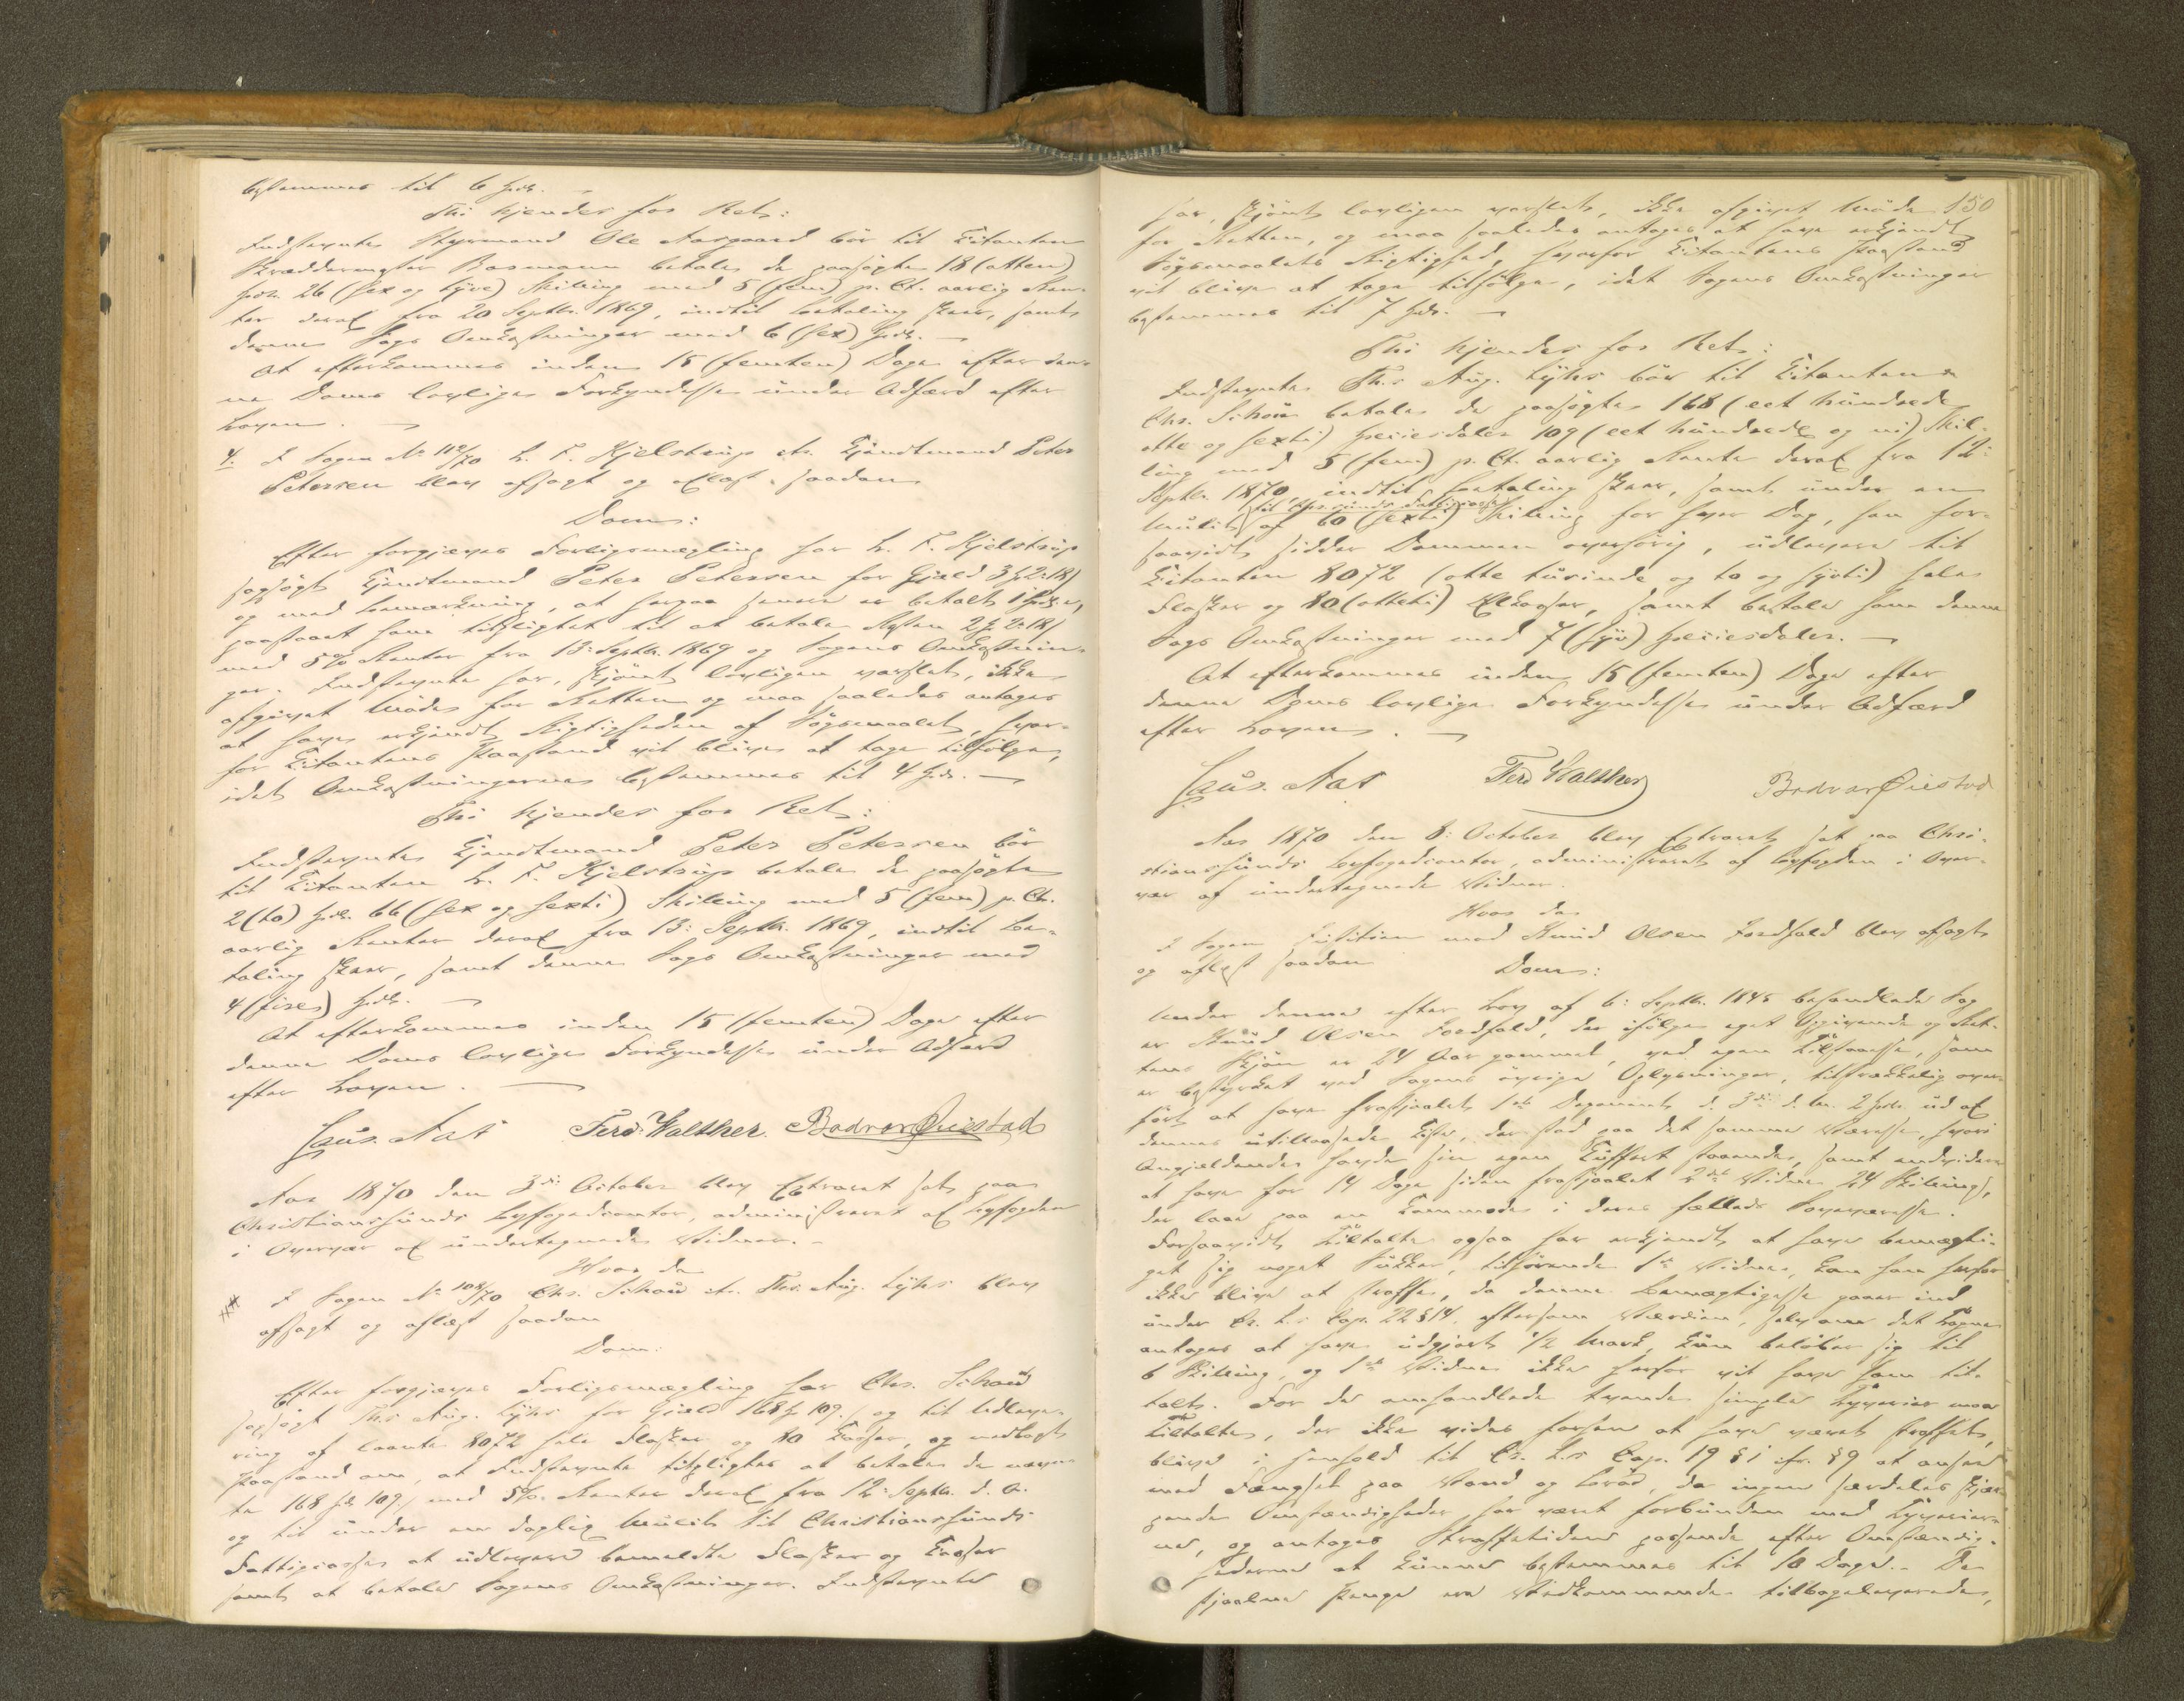 bestemmes til 6 Spdl. —
Thi kjendes for Ret:
Indstevnte Styrmand Ole Aasgaard bör til Citanten
Skræddermester Basmann betale de paasögte 18 (atten)
Spdlr. 26 (sex og tyve) Skilling med 5 (fem) p. Ct. aarlig Ren-
ter deraf fra 20 Septbr. 1869, indtil Betaling skeer, samt
denne Sags Omkostninger med 6 (sex) Spdl. —
At efterkommes inden 15 (femten) Dage efter den-
ne Doms lovlige Forkyndelse under Adfærd efter
Loven. —
4. I Sagen No 112/70 L. F. Kjelstrup ctr. Gjendtmand Peter
Petersen blev afsagt og oplæst saadan
Dom:
Efter forgjæves Forligsmægling har L. F. Kjelstrup
sagsögt Peter Petersen for Gjæld
og med Bemærkning, at herpaa senere er betalt 1 Spd.,
paastaaet ham tilpligtet til at betale Resten
med 5% Renter fra 13: Septbr. 1869 og Sagens Omkostnin-
ger. Indstevnte har, skjönt lovligen varslet, ikke
afgivet Möde for Retten og maa saaledes antages
at have erkjendt Rigtigheden af Sögsmaalet, hvor-
for Citantens Paastand vil blive at tage tilfölge,
idet Omkostningerne bestemmes til 4 Spd. —
Thi kjendes for Ret:
Indstevnte Peter Petersen bör
til Citanten L. F. Kjelstrup betale de paasögte
2 (to) Spdlr. 66 (sex og sexti) Skilling med 5 (fem) p. Ct.
aarlig Renter deraf fra 13: Septbr. 1869, indtil Be-
taling skeer, samt denne Sags Omkostninger med
4 (fire) Spdlr. —
At efterkommes inden 15 (femten) Dage efter
denne Doms lovlige Forkyndelse under Adfærd
efter Loven. —
Claus. Aas Ferd. Walther. Bodvar Öiestad
Aar 1870 den 3die October blev Extraret sat paa
Christianssunds Byfogedcontor, administreret af Byfogden
i Overvær af undertegnede Vidner. —
Hvor da
I Sagen No 108/70 Chr. Schou ctr. Ths. Aug. Lyks blev
afsagt og oplæst saadan
Dom:
Efter forgjæves Forligsmægling har Chr. Schou
sagsögt Ths Aug. Lyhs for Gjæld 168 Spd 109 s. og til Udleve-
ring af laante 8072 hele Flasker og 80 Kasser, og nedlagt
Paastand om, at Indstevnte tilpligtes at betale de nævn-
te 168 Spd 109 s. med 5% Renter deraf fra 12: Septbr. d. A.
og til under en daglig Mulct til Christianssunds
Fattigcasse at udlevere bemeldte Flasker og Kasser
samt at betale Sagens Omkostninger. Indstevnte
150
har, skjönt lovligen varslet, ikke afgivet Möde
for Retten, og maa saaledes antages at have erkjendt
Sögsmaalets Rigtighed, hvorfor Citantens Paastand
vil blive at tage tilfölge, idet Sagens Omkostninger
bestemmes til 7 Spd. —
Thi kjendes for Ret:
Indstevnte Th.s Aug. Lyhs bör til Citanten
Chr. Schou betale de paasögte 168 (eet hundrede
otte og sexti) Speciesdaler 109 (eet hundrede og ni) Skil-
ling med 5 (fem) p. Ct. aarlig Rente deraf fra 12:
Septbr. 1870, indtil Betaling skeer, samt under en
til Chrsunds Fattigcasse
Mulct af 60 (sexti) Skilling for hver Dag, han for-
saavidt sidder Dommen overhörig, udlevere til
Citanten 8072 (otte tusinde og to og sytti) hele
Flasker og 80 (otteti) Ölkasser, samt betale ham denne
Sags Omkostninger med 7 (syv) Speciesdaler. —
At efterkommes inden 15 (femten) Dage efter
denne Doms lovlige Forkyndelse under Adfærd
efter Loven. —
Claus. Aas Ferd Walther Bodvar Öiestad
Aar 1870 den 8: October blev Extraret sat paa Chri-
stianssunds Byfogedcontor, administreret af Byfogden i Over-
vær af undertegnede Vidner.
Hvor da
I Sagen Justitien mod Knud Olsen Fordfald blev afsagt
og oplæst saadan Dom:
Under denne efter Lov af 6: Septbr. 1845 behandlede Sag
er Knud Olsen Fordfald, der ifölge eget Opgivende og Ret-
tens Skjön er 24 Aar gammel, ved egen Tilstaaelse, som
er bestyrket ved Sagens övrige Oplysninger, tilstrækkelig over-
fört at have frastjaalet 1ste Deponent d. 3die d. M. 2 Spd. ud af
dennes utillaasede Kiste, der stod paa det samme Værelse, hvori
Angjeldende havde sin egen Kuffert staaende, samt endvidere
at have for 14 Dage siden frastjaalet 2det Vidne 24 Skilling,
der laae paa en Kommode i deres fælleds Soveværelse.
Forsaavidt Tiltalte ogsaa har erkjendt at have bemægti-
get sig noget Sukker, tilhörende 1ste Vidne, kan han herfor
ikke blive at straffe, da denne Bemægtigelse gaaer ind
under Cr. L.s Cap. 22 § 14, eftersom Værdien, selv om det Tagne
antages at have udgjort 1/2 Mark, kun belöber sig til
6 Skilling, og 1ste Vidne ikke herfor vil have ham til-
talt. For de omhandlede tvende simple Tyverier maa
Tiltalte, der ikke vides forhen at have været straffet,
blive i Henhold til Cr. L.s Cap. 19 § 1 cfr. § 9 at ansee
med Fængsel paa Vand og Bröd, da ingen særdeles skjær-
pende Omstændigheder har været forbunden med Tyverier-
ne, og antages Straffetiden passende efter Omstændig-
hederne at kunne bestemmes til 10 Dage. — De
stjaalne Penge ere Vedkommende tilbageleverede,